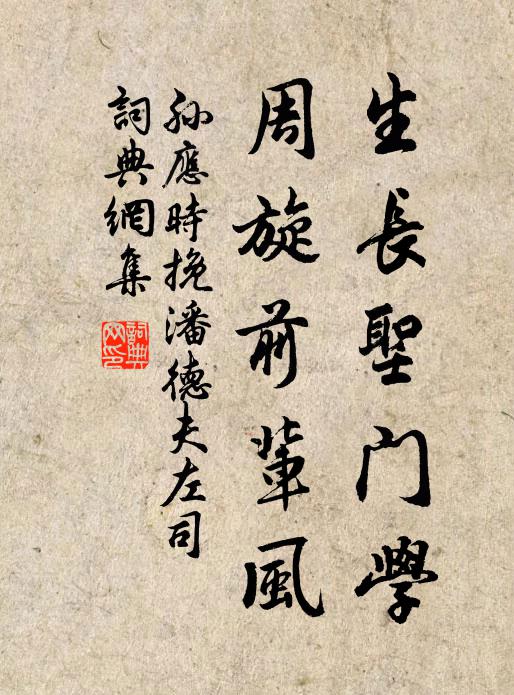 生長聖門學
周旋前輩風
孫應時挽潘德夫左司
詞典網集
詞典網印